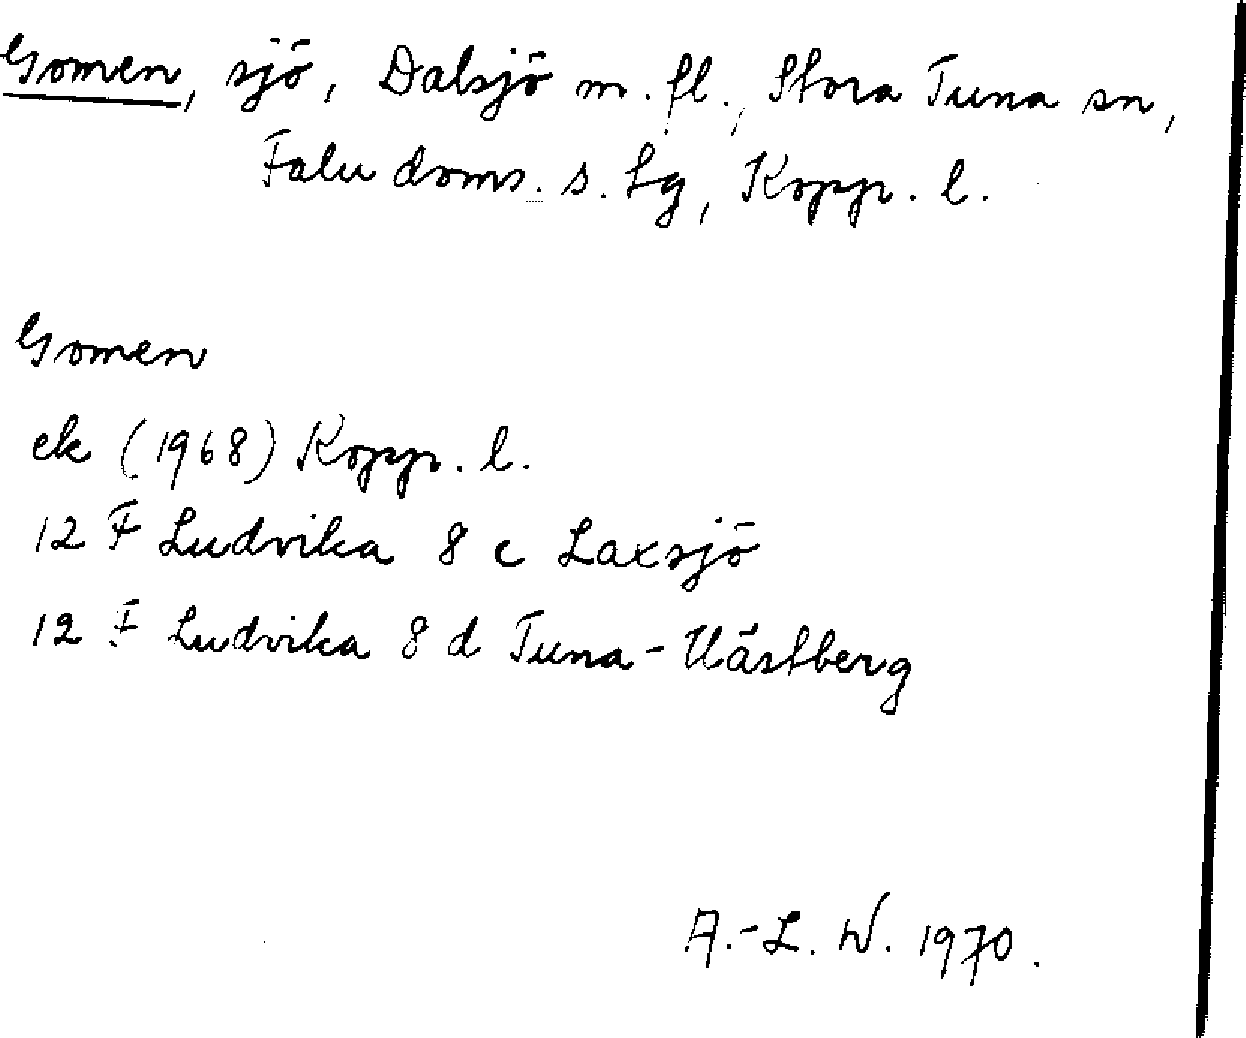 Gomen, sjö, Dalsjö m. fl., Stora Tuna sn,
Falu doms. s. tg, Kopp. l.
Gomen
ek (1968) Kopp. l.
12 F Ludvika 8 c Laxsjö
12 F Ludvika 8 d Tuna-Västberg
A.-L. W. 1970.